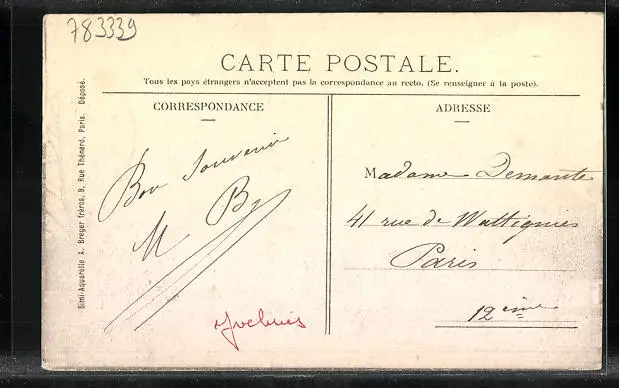 783339
CARTE POSTALE.
Tous les pays étrangers n'acceptent pas la correspondance au recto. (Se renseigner à la poste).
CORRESPONDANCE
Bon Souvenir
M By
Yvelines
ADRESSE
Madame Demante
41 rue de Wattignies
Paris
12ème
Simi-Aquarelle A. Breger frères, 9, Rue Thénard, Paris. Déposé.